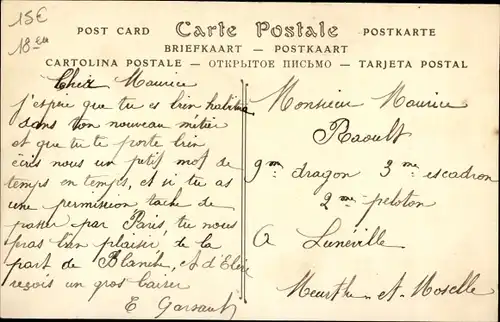 15€
18 en
POST CARD Carte Postale POSTKARTE
BRIEFKAART — POSTKAART
CARTOLINA POSTALE — ОТКРЫТОЕ ПИСЬМО — TARJETA POSTAL
Cher Maurice
j'espère que tu es bien habitué
dans ton nouveau métier
et que tu te porte bien
écris nous un petit mot de
temps en temps, et si tu as
une permission tache de
passer par Paris, tu nous
feras bien plaisir, de la
part de Blanche, et d'Elise
reçois un gros baiser
E Garsault
Monsieur Maurice
Raoult
9me dragon 3me escadron
2me peloton
A Lunéville
Meurthe-et-Moselle